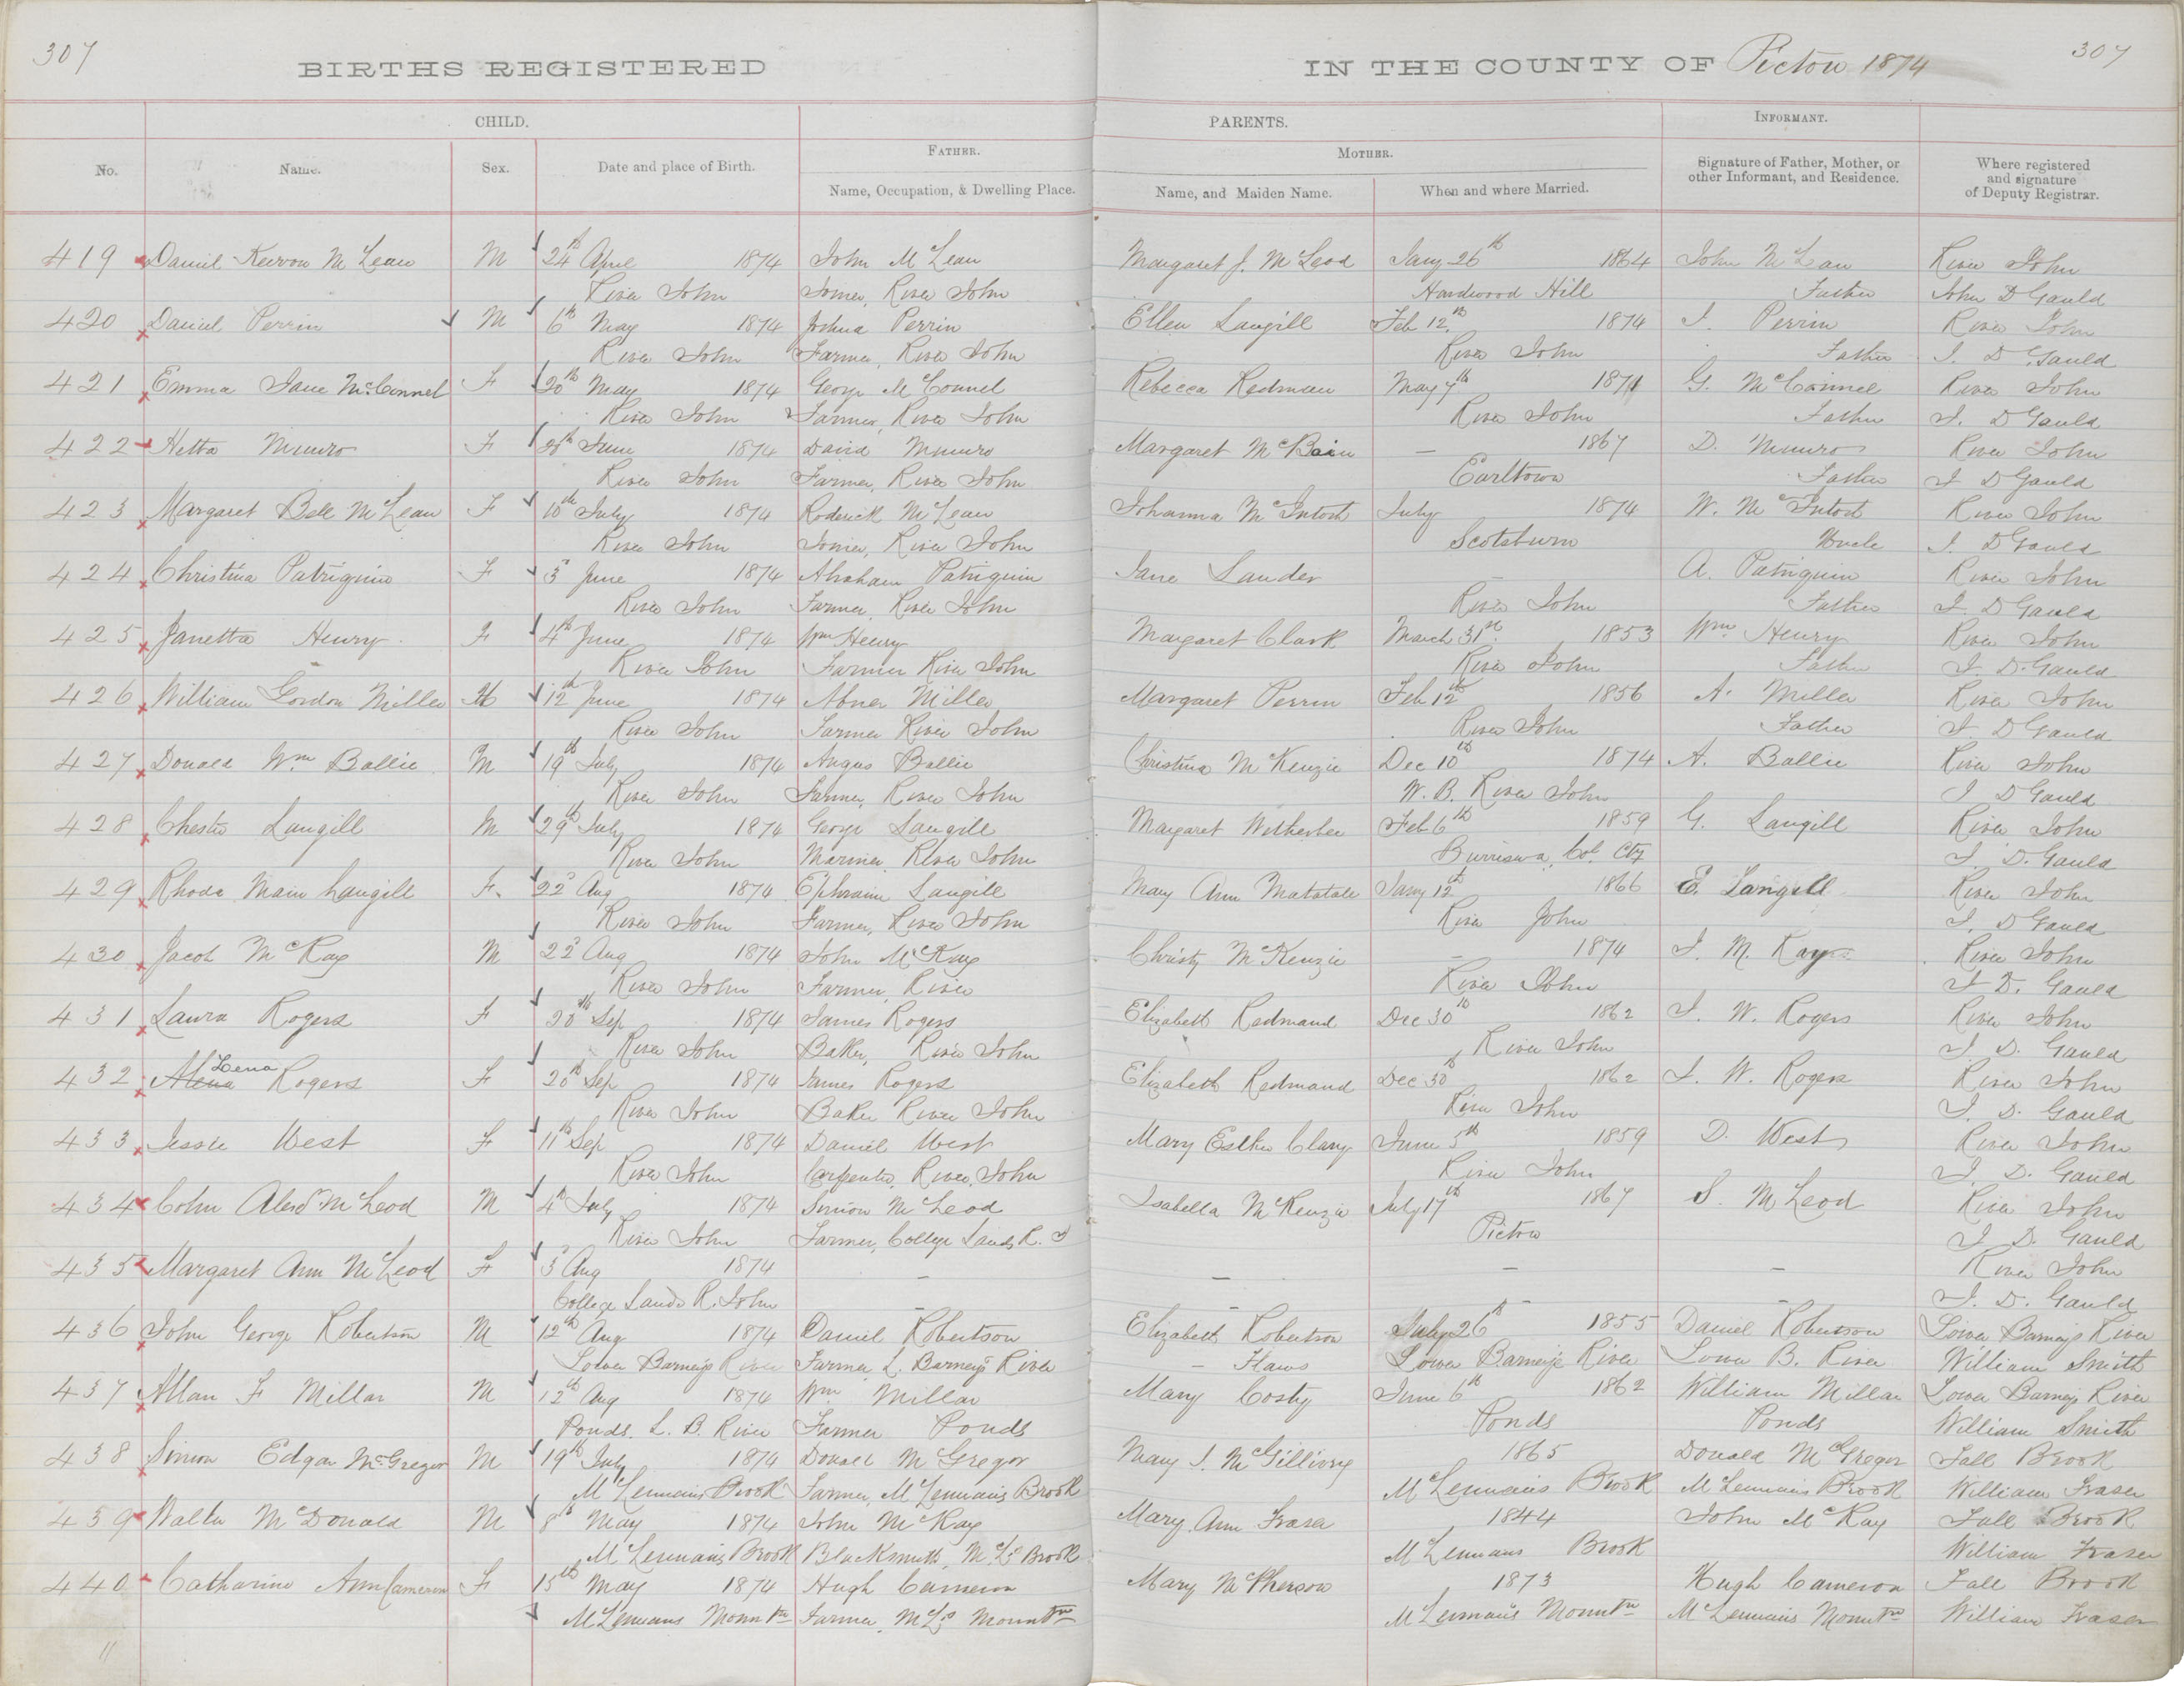 307
307
BIRTHS REGISTERED IN THE COUNTY OF Pictou 1874
CHILD.
PARENTS.
INFORMANT.
No.
Name.
Sex.
Date and place of Birth.
FATHER.
Name, Occupation, & Dwelling Place.
MOTHER.
Name, and Maiden Name.
When and where Married.
Signature of Father, Mother, or
other Informant, and Residence.
Where registered
and signature
of Deputy Registrar.
419 Daniel McLean M 24th April 1874 John McLean Margaret J. McLeod Jany 26th 1864 John McLean River John
River John River John Hardwood Hill Father John D Gauld
420 Daniel Perrin M 6th May 1874 Joshua Perrin Ellen Langill Feb 12th 1874 J. Perrin River John
River John Farmer, River John River John Father J. D Gauld
421 Emma Jane McConnel F 20th May 1874 George McConnel Rebecca Redman May 7th 1871 G. McConnel River John
River John Farmer, River John River John Father J. D Gauld
422 Hetta Munro F 20th June 1874 David Munro Margaret McBain — 1867 D. Munro River John
River John Farmer, River John Earltown Father J D Gauld
423 Margaret Bell McLean F 10th July 1874 Roderick McLean Johanna McIntosh July 1874 W. McIntosh River John
River John River John Scotsburn Uncle J. D Gauld
424 Christina Patriquin F 3d June 1874 Abraham Patriquin Jane Lauder — A. Patriquin River John
River John Farmer, River John River John Father J. D Gauld
425 Janetta Henry F 4th June 1874 Wm Henry Margaret Clark March 31st 1853 Wm Henry River John
River John Farmer River John River John Father J. D. Gauld
426 William Gordon Miller M 12th June 1874 Abner Miller Margaret Perrin Feb 12th 1856 A. Miller River John
River John Farmer River John River John Father J. D Gauld
427 Donald Wm Ballie M 19th July 1874 Angus Ballie Christina McKenzie Dec 10th 1874 A. Ballie River John
River John Farmer, River John W. B. River John J D Gauld
428 Chester Langill M 29th July 1874 George Langill Margaret Witherbee Feb 6th 1859 G. Langill River John
River John Mariner, River John Col. Cty J. D. Gauld
429 Rhoda Main Langill F. 22d Aug 1874 Ephraim Langill Mary Ann Matatale Jany 12th 1866 E. Langill River John
River John Farmer, River John River John J. D Gauld
430 Jacob McKay M 22d Aug 1874 John McKay Christy McKenzie — 1874 J. M. Kay River John
River John Farmer, River River John J D. Gauld
431 Laura Rogers F 20th Sep 1874 James Rogers Elizabeth Redmand Dec 30th 1862 J. W. Rogers River John
River John Baker, River John River John J. D. Gauld
432 Lena Rogers F 20th Sep 1874 James Rogers Elizabeth Redmand Dec 30th 1862 J. W. Rogers River John
River John Baker River John River John J. D. Gauld
433 Jessie West F 11th Sep 1874 Daniel West Mary Esther Clary June 5th 1859 D. West River John
River John Carpenter, River John River John J. D. Gauld
434 Alexdr McLeod M 4th July 1874 Simon McLeod Isabella McKenzie July 17th 1867 S. McLeod River John
River John Farmer, College Lands R. J Pictou J D. Gauld
435 Margaret Ann McLeod F 3d Aug 1874 — — — — River John
College Lands R. John — — — — J. D. Gauld
436 John George Robertson M 12th Aug 1874 Daniel Robertson Elizabeth Robertson July 26th 1855 Daniel Robertson Lower Barneys River
Lower Barneys River Farmer L. Barneys River — Haws Lower Barneys River Lower B. River William Smith
437 Allan F Millar M 12th Aug 1874 Wm Millar Mary Costy June 6th 1862 William Millar Lower Barneys River
Ponds. L. B. River Farmer Ponds Ponds Ponds William Smith
438 Simon Edgar McGregor M 19th July 1874 Donald McGregor Mary J. McGillivry 1865 Donald McGregor Fall Brook
McLennans Brook Farmer, McLennans Brook McLennans Brook McLennans Brook William Fraser
439 Walter McDonald M 8th May 1874 John McKay Mary Ann Fraser 1844 John McKay Fall Brook
McLennans Brook Blacksmith, McLs Brook McLennans Brook William Fraser
440 Catharine Ann Cameron F 15th May 1874 Hugh Cameron Mary McPherson 1873 Hugh Cameron Fall Brook
McLennans Mountn Farmer, McLs Mountn McLennans Mountn McLennans Mountn William Fraser
11